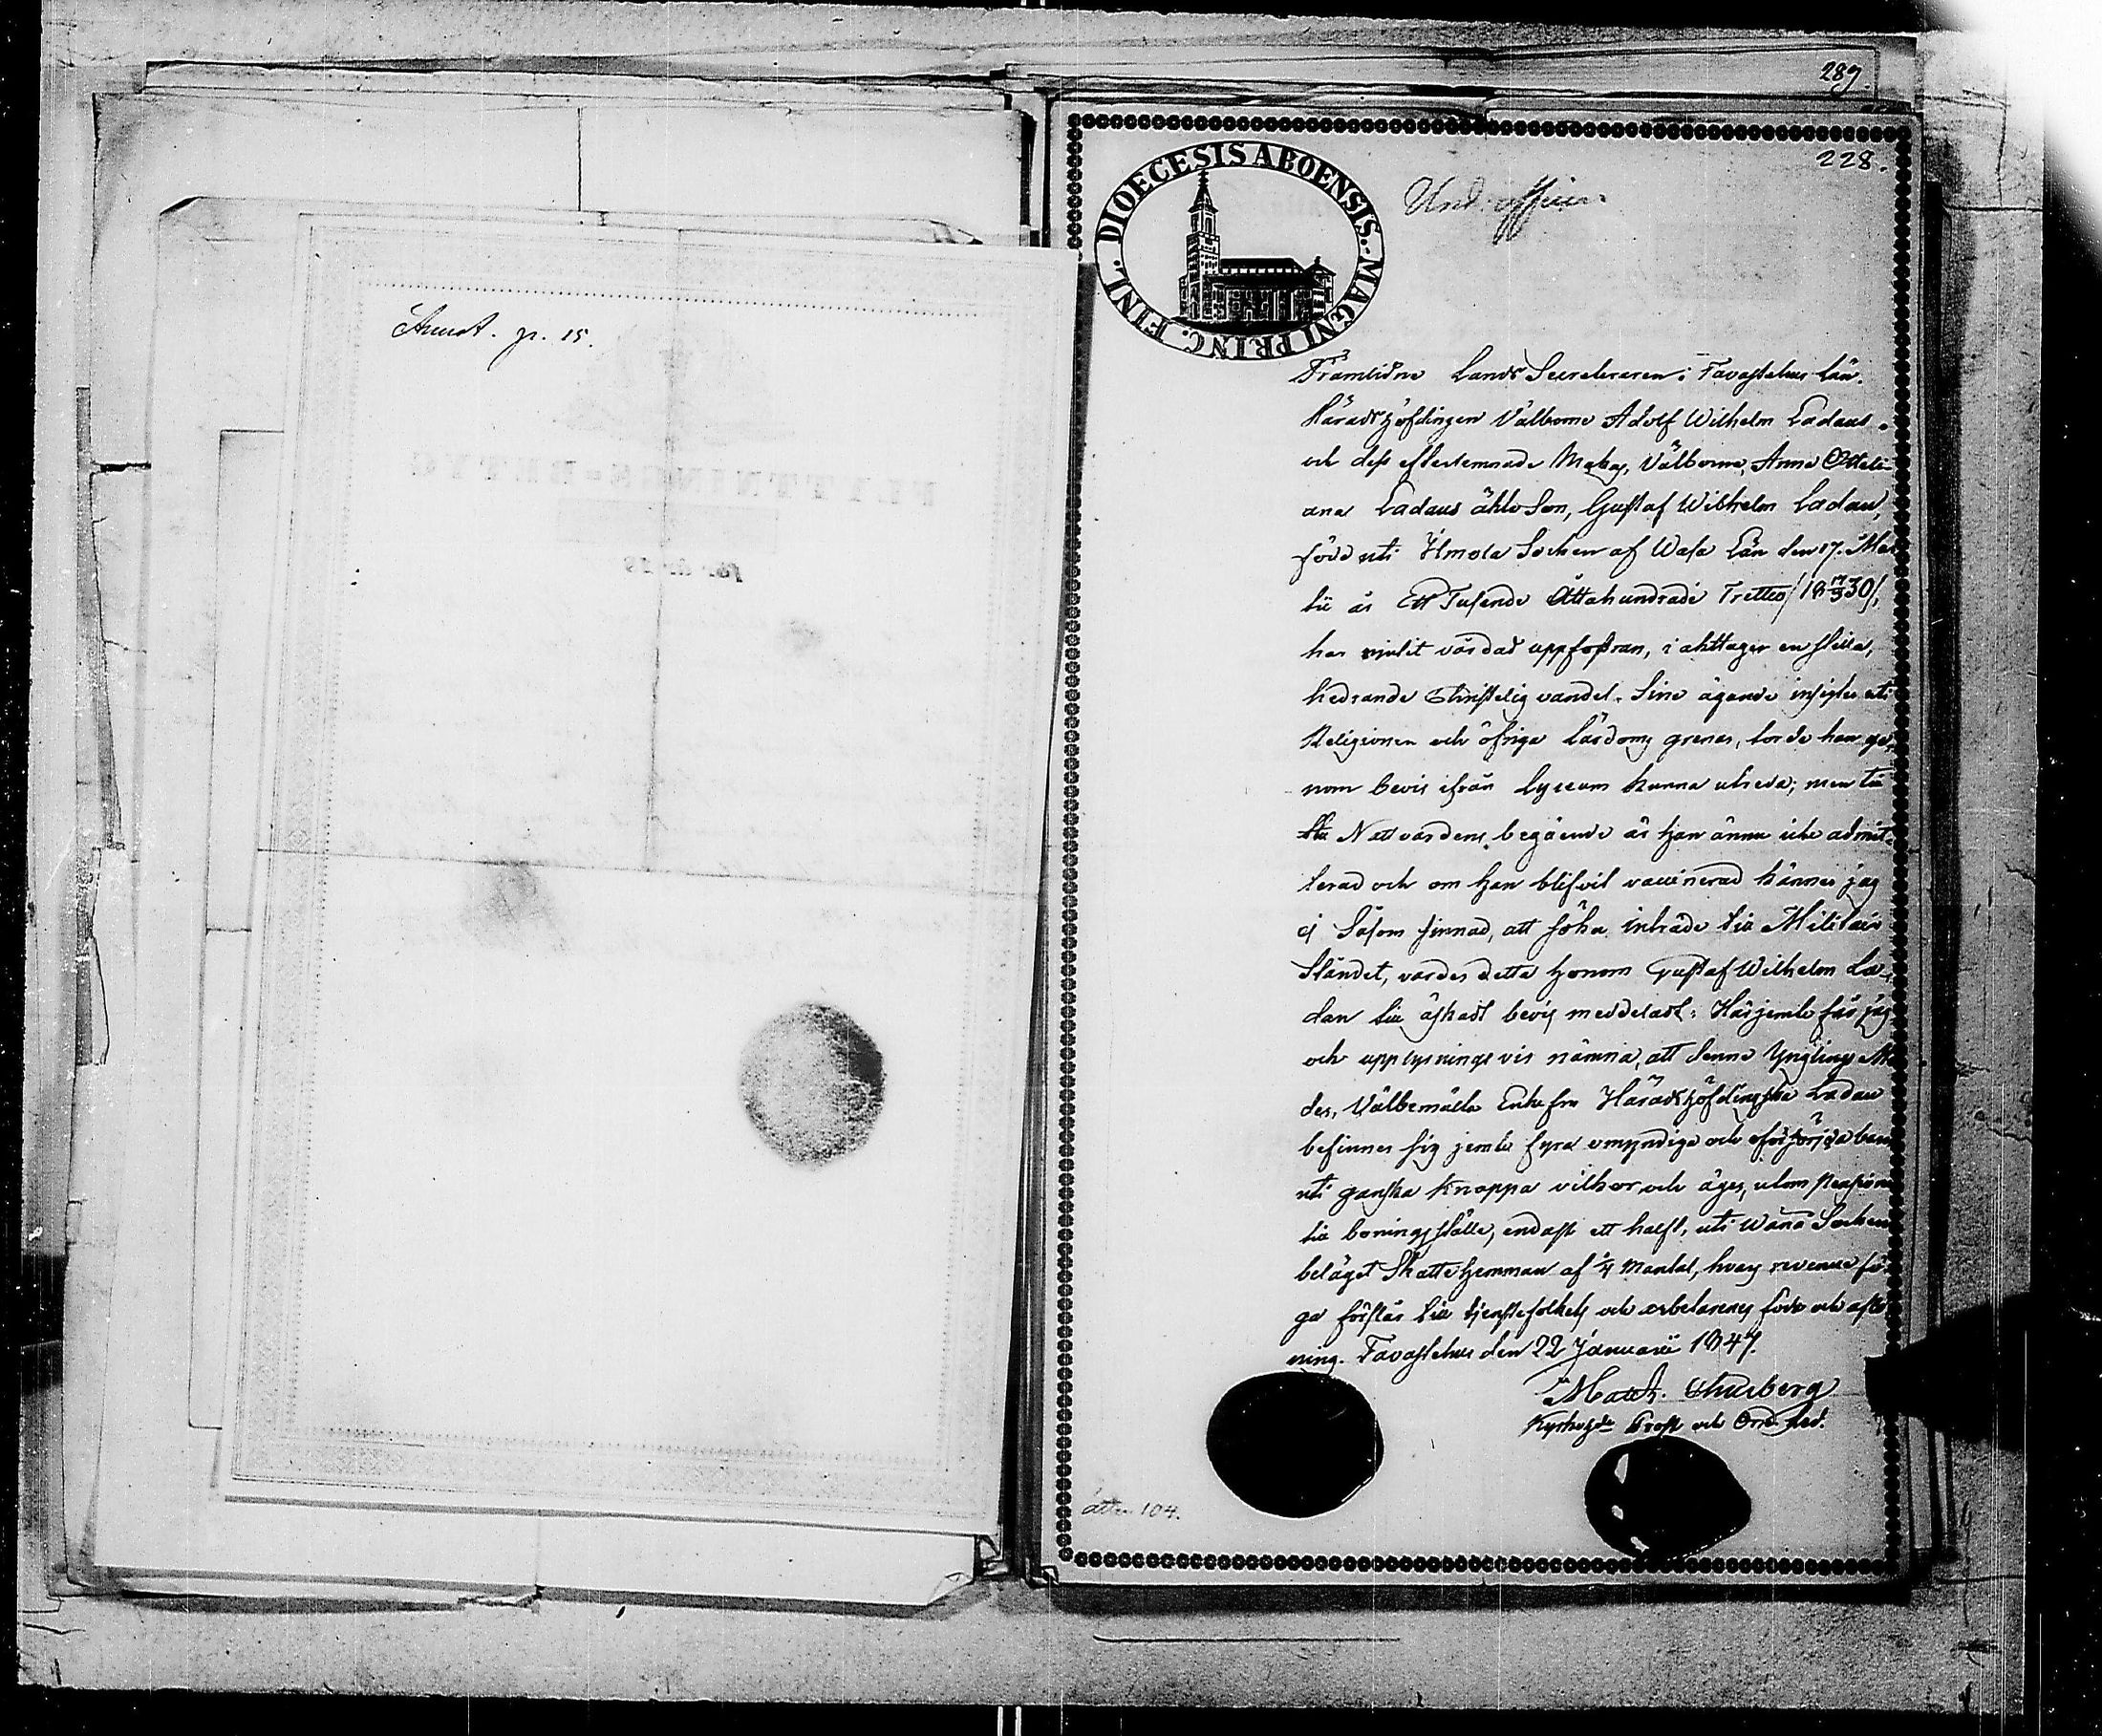 289.
228.
DIOECESIS ABOENSIS. MAGNI PRINC. FINL.
Und:officer.
Annot. p. 15.
FLYTTNINGS-BETYG
Framlidne Lands Secreteraren i Tavastehus Län.
Häradshöfdingen Välborne Adolf Wilhelm Ladaus
och dess efterlemnade Maka, Välborna, Anna Ottili-
ana Ladaus äkta Son, Gustaf Wilhelm Ladau,
född uti Ilmola Socken af Wasa Län den 17. Mar
tii år Ett Tusende Åttahundrade Trettio /18 17/3 30/,
har njutit vårdad uppfostran, i akttager en stilla,
hedrande Christelig vandel. Sine ägande insigter uti
Religionen och öfriga Lärdoms grenar, torde han ge-
nom bevis ifrån Lyceum kunna utreda; men till
Nattvardens begående är han ännu icke admit-
terad och om han blifvit vaccinerad känner jag
ej Såsom sinnad, att söka inträde till Militair
Ståndet, varder detta honom Gustaf Wilhelm La-
dau till äskadt bevis meddeladt: Härjemte får jag
och upplysnings vis nämna, att denne Ynglings Mo
der, Välbemälta Enkefru Häradshöfdingskan Ladau
befinner sig jemte fyra omyndiga och oförsörjda barn
uti ganska knappa vilkor och äger, utom Pension
till boningsställe, endast ett halft, uti Wånå Socken
beläget Skattehemman af 1/4 Mantal, hvars revenue fö-
ga förslår till tjenstefolkets och arbetarenes födo och aflö
ning. Tavastehus den 22 Januarii 1847.
Kyrkohde Prost och Ord. Led.
åtta. 104.